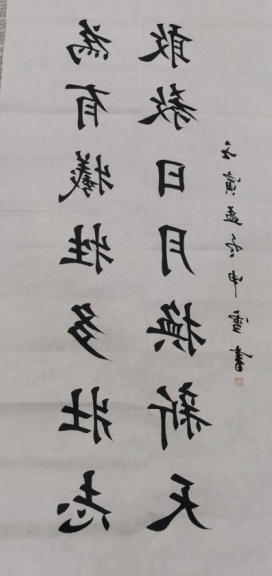 為有犧牲多壯志
敢教日月換新天
壬寅孟冬書